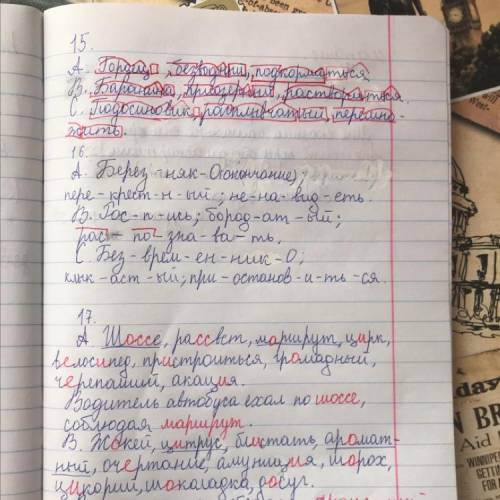 15.
А. Гордец, безводный, подкормиться,
В. Баранина, приозёрный, растворяться.
С. Подосиновик, расплывчатый, переумно-
жить.
16.
А. Берез-няк-О(окончание);
пере-крест-н-ый; не-на-вид-еть.
В. Рос-п-ись; бород-ат-ый;
рас-по-зна-ва-ть.
С. Без-врем-ен-ник-О;
клык-аст-ый; при-останов-и-ть-ся.
17.
А Шоссе, рассвет, маршрут, цирк,
велосипед, пристроиться, громадный,
черепаший, акация.
Водитель автобуса ехал по шоссе,
соблюдая маршрут.
В. Жокей, цитрус, блистать, аромат-
ный, очертание, амуниция, шорох,
цикорий, шоколадка, досуг.
day
BR
Aid
WINNIPE
GETTING
FO